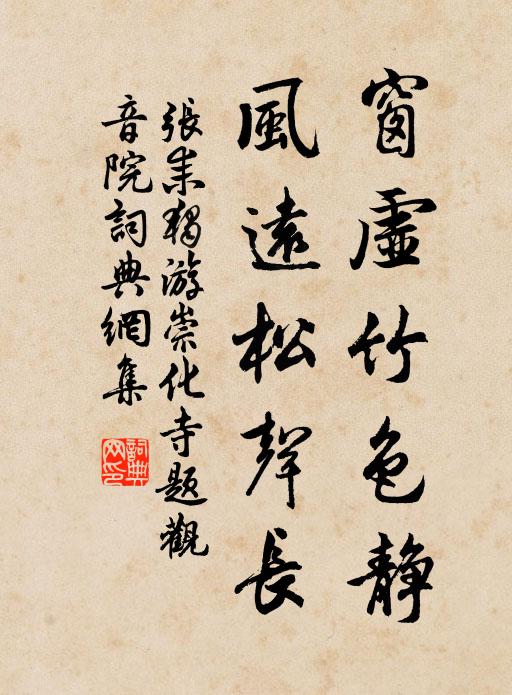 窗虛竹色静
風遠松聲長
張耒獨游崇化寺題觀
音院詞典網集
詞典网印